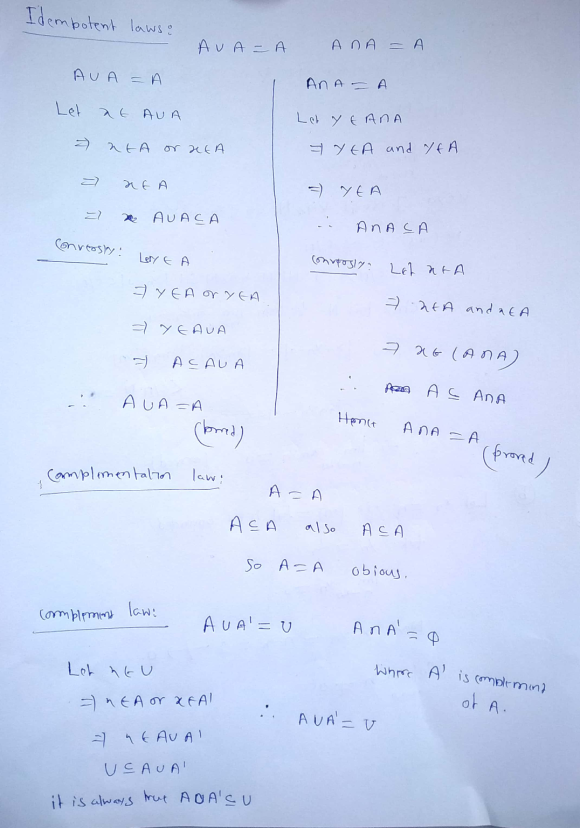 Idempotent laws:
A ∪ A = A A ∩ A = A
A ∪ A = A
Let x ∈ A ∪ A
⇒ x ∈ A or x ∈ A
⇒ x ∈ A
⇒ A ∪ A ⊆ A
Conversly: Let y ∈ A
⇒ y ∈ A or y ∈ A
⇒ y ∈ A ∪ A
⇒ A ⊆ A ∪ A
∴ A ∪ A = A
(proved)
A ∩ A = A
Let y ∈ A ∩ A
⇒ y ∈ A and y ∈ A
⇒ y ∈ A
∴ A ∩ A ⊆ A
Conversly: Let x ∈ A
⇒ x ∈ A and x ∈ A
⇒ x ∈ (A ∩ A)
∴ A ⊆ A ∩ A
Hence A ∩ A = A
(proved)
Complementation law:
A = A
A ⊆ A also A ⊆ A
So A = A obious.
Complement law: A ∪ A' = U A ∩ A' = φ
where A' is complement
of A.
Let x ∈ U
⇒ x ∈ A or x ∈ A'
⇒ x ∈ A ∪ A'
U ⊆ A ∪ A'
it is always true A ∪ A' ⊆ U
∴ A ∪ A' = U